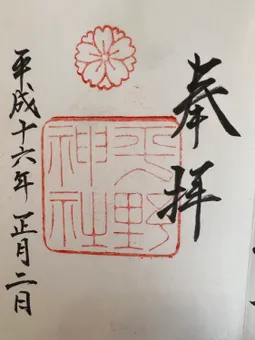 奉拝
平野
神社
平成十六年正月二日